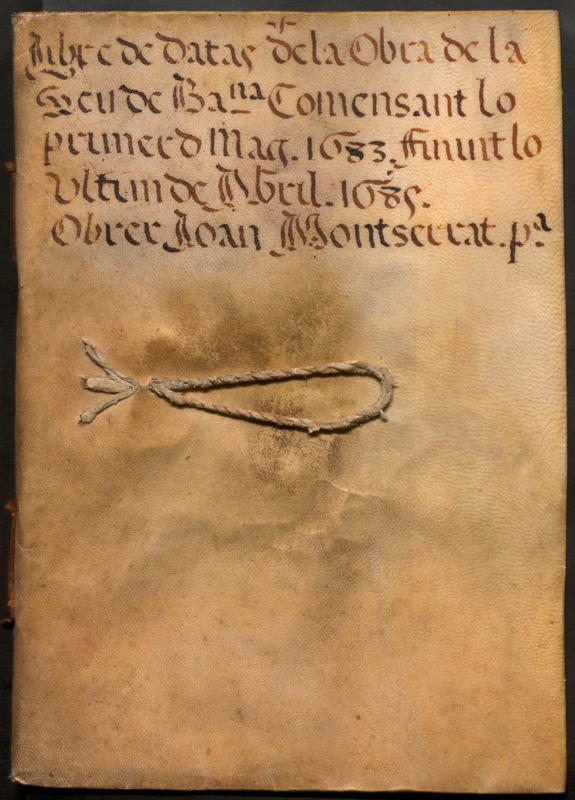 Llibre de Datas de la Obra de la
Seu de Ba.na Comensant lo
primer d Mag. 1683. finint lo
Ultim de Abril. 1685.
Obrer Joan Montserrat. p.a